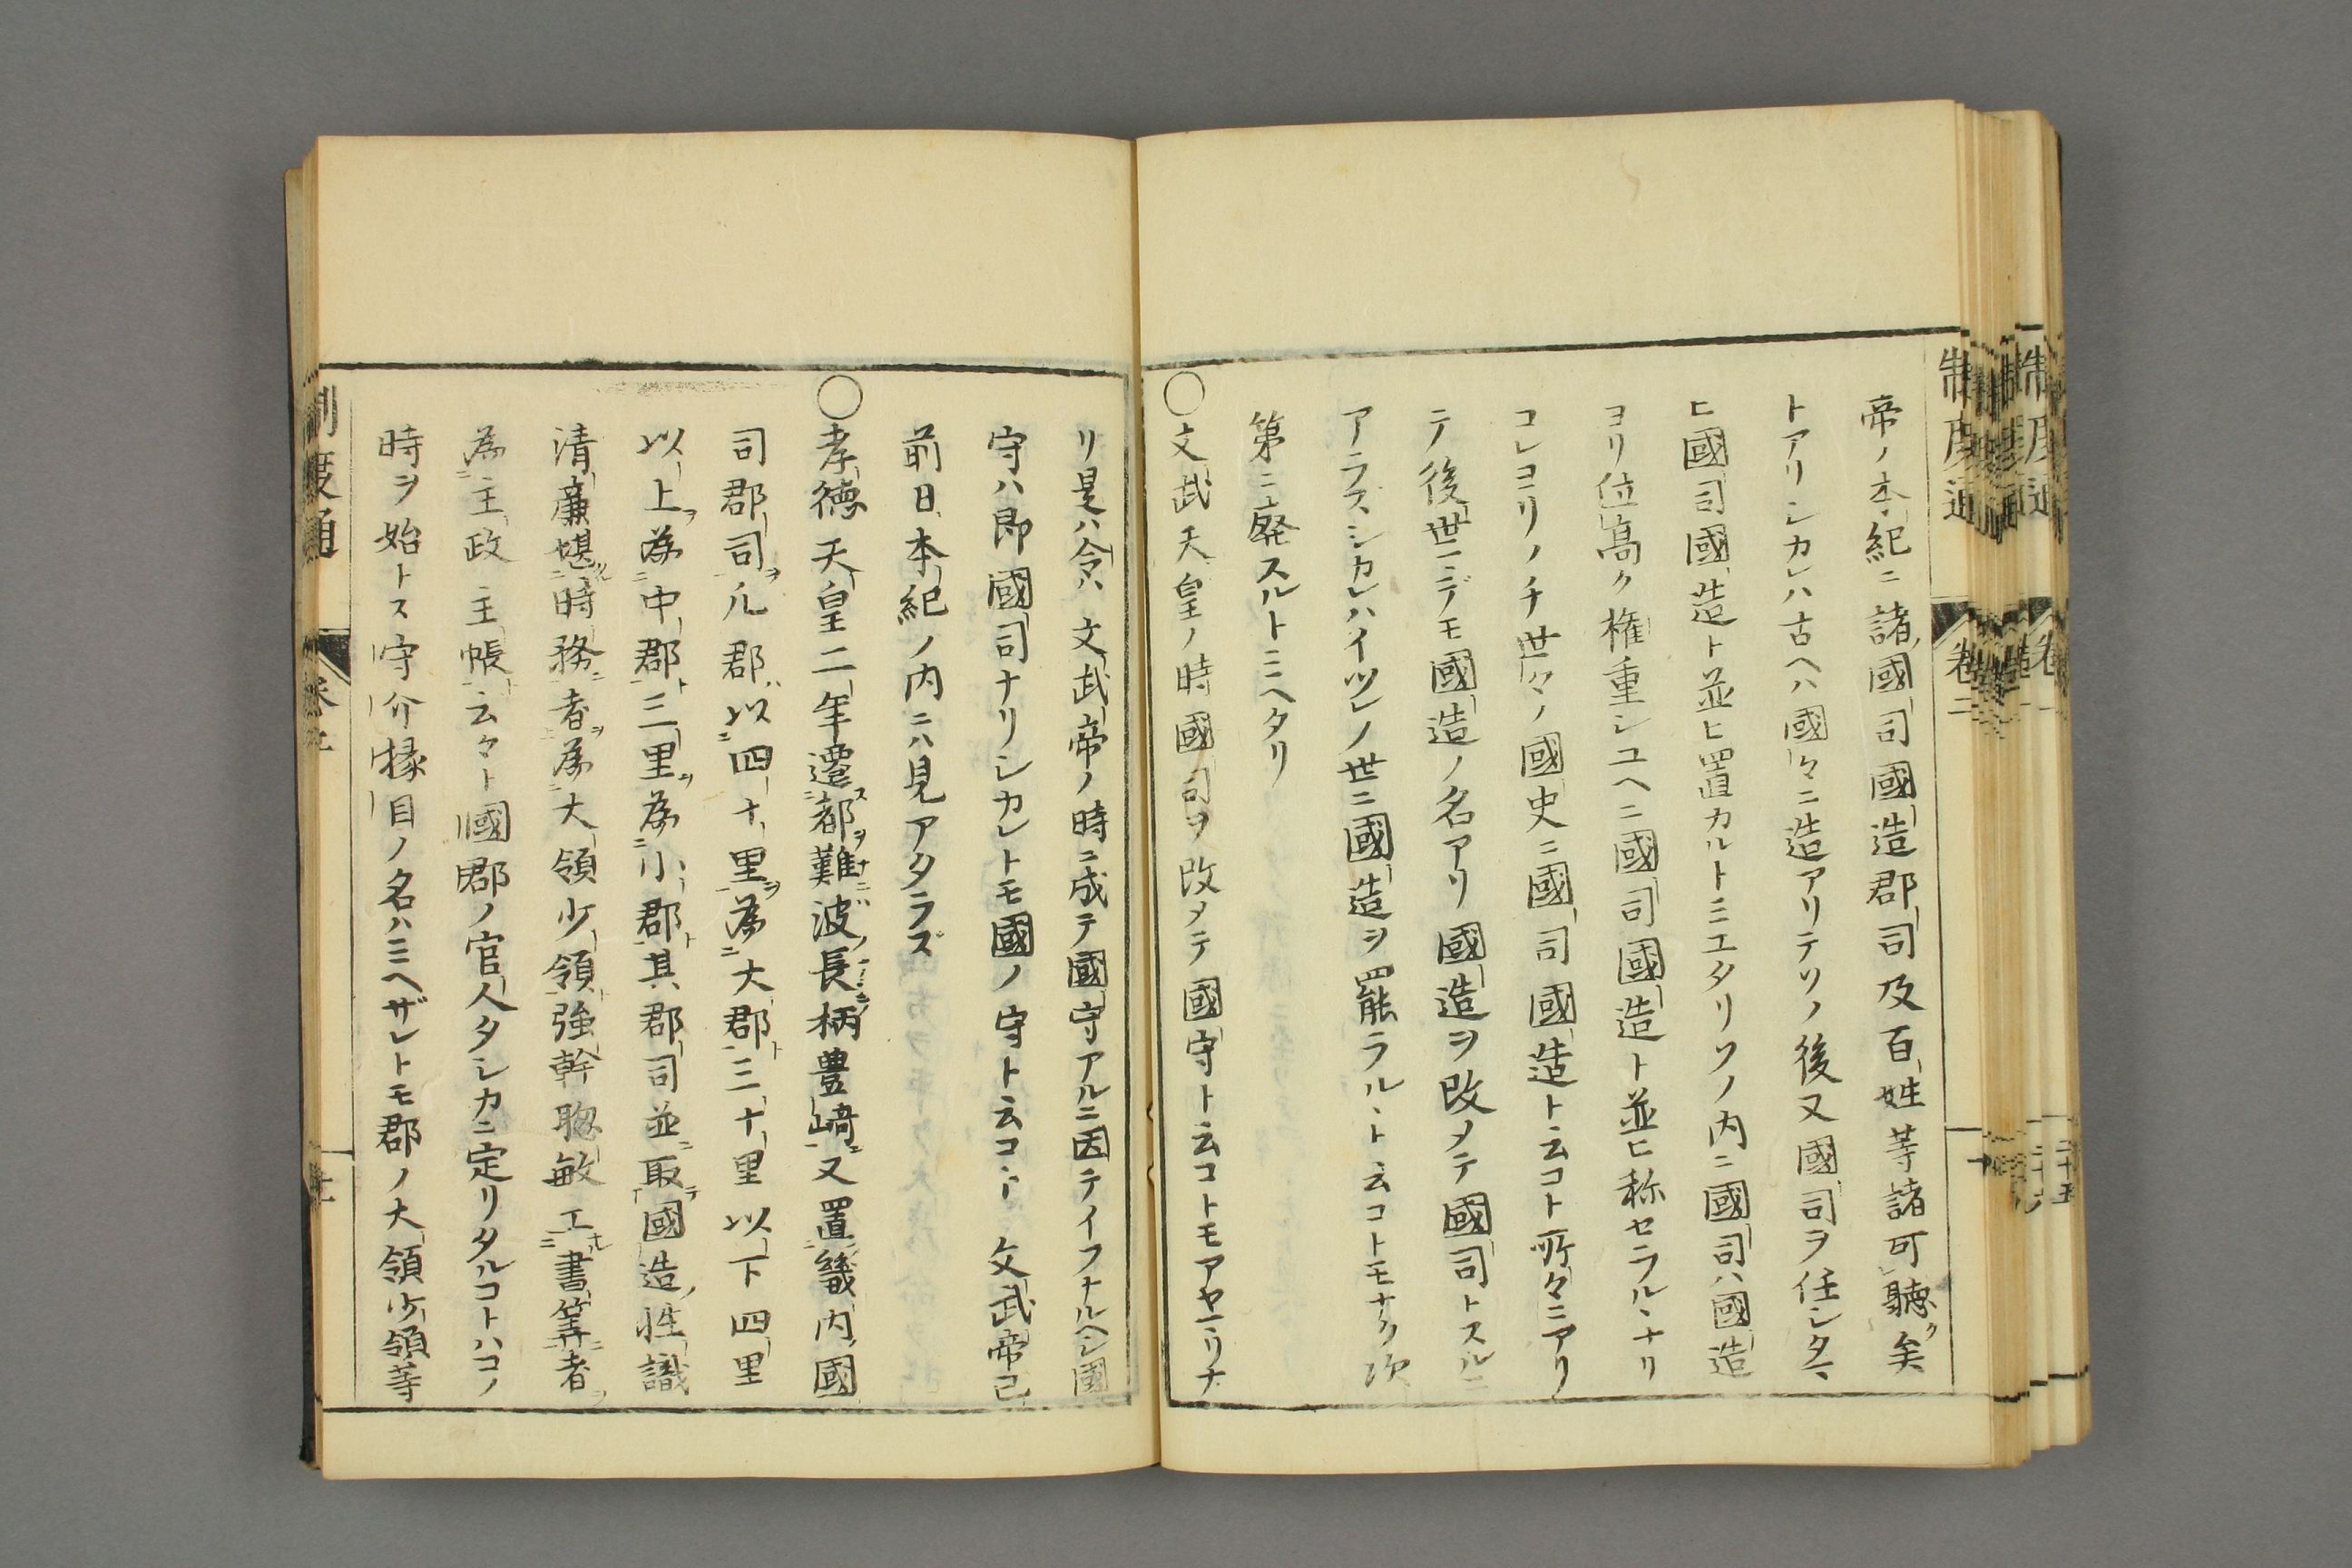 帝ノ本紀ニ諸國司國造郡司及百姓等諸可聽矣
トアリシカレハ古ヘハ國々ニ造アリテソノ後又國司ヲ任シタマ
ヒ國司國造ト並ヒ置カルトミエタリソノ内ニ國司ハ國造
ヨリ位髙ク権重シユヘニ國司國造ト並ヒ称セラルヽナリ
コレヨリノチ世々ノ國史ニ國司國造ト云コト所々ニアリ
テ後世マデモ國造ノ名アリ國造ヲ改メテ國司トスルニ
アラスシカレハイツレノ世ニ國造ヲ罷ラルヽト云コトモナク次
第ニ廃スルトミヘタリ
○文武天皇ノ時國司ヲ改メテ國守ト云コトモアヤマリナ
リ是ハ令ハ文武帝ノ時ニ成テ國守アルニ因テイフナルヘシ國
守ハ即國司ナリシカレトモ國ノ守ト云コト文武帝已
前日本紀ノ内ニハ見アタラズ
○孝徳天皇二年遷都難波長柄豊﨑又置畿内國
司郡司凡郡以四十里為大郡三十里以下四里
以上為中郡三里為小郡其郡司並取國造性識
清廉堪時務者為大領少領強幹聡敏工書筭者
為主政主帳云々ト國郡ノ官人タシカニ定リタルコトハコノ
時ヲ始トス守介掾目ノ名ハミヘザレトモ郡ノ大領少領等
制度通
卷二